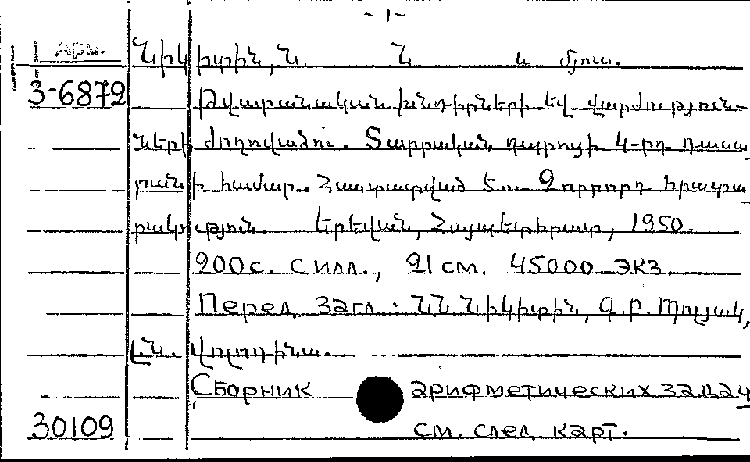 - 1 -
Арм. Նիկիտին, Ն. Ն. և մյուս.
3-6872 Թվաբանական խնդիրների եվ վարժություն-
ների ժողովածու. Տարրական դպրոցի 4-րդ դասա
րանի համար. Հաստատված է. Չորրորդ հրատա
րակություն. Երեվան, Հայպետհրատ, 1950.
200 с. с илл., 21 см. 45000 экз
Перед загл: Ն.Ն. Նիկիտին, Գ.Բ. Պոլյակ,
Լ.Ն. Վոլոդինա.
Сборник арифметических задач
30109 см. след карт.